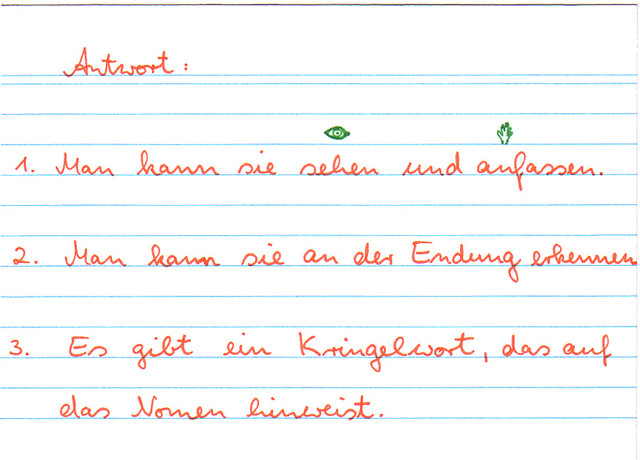 Antwort:
1. Man kann sie sehen und anfassen.
2. Man kann sie an der Endung erkennen
3. Es gibt ein Kringelwort, das auf
das Nomen hinweist.